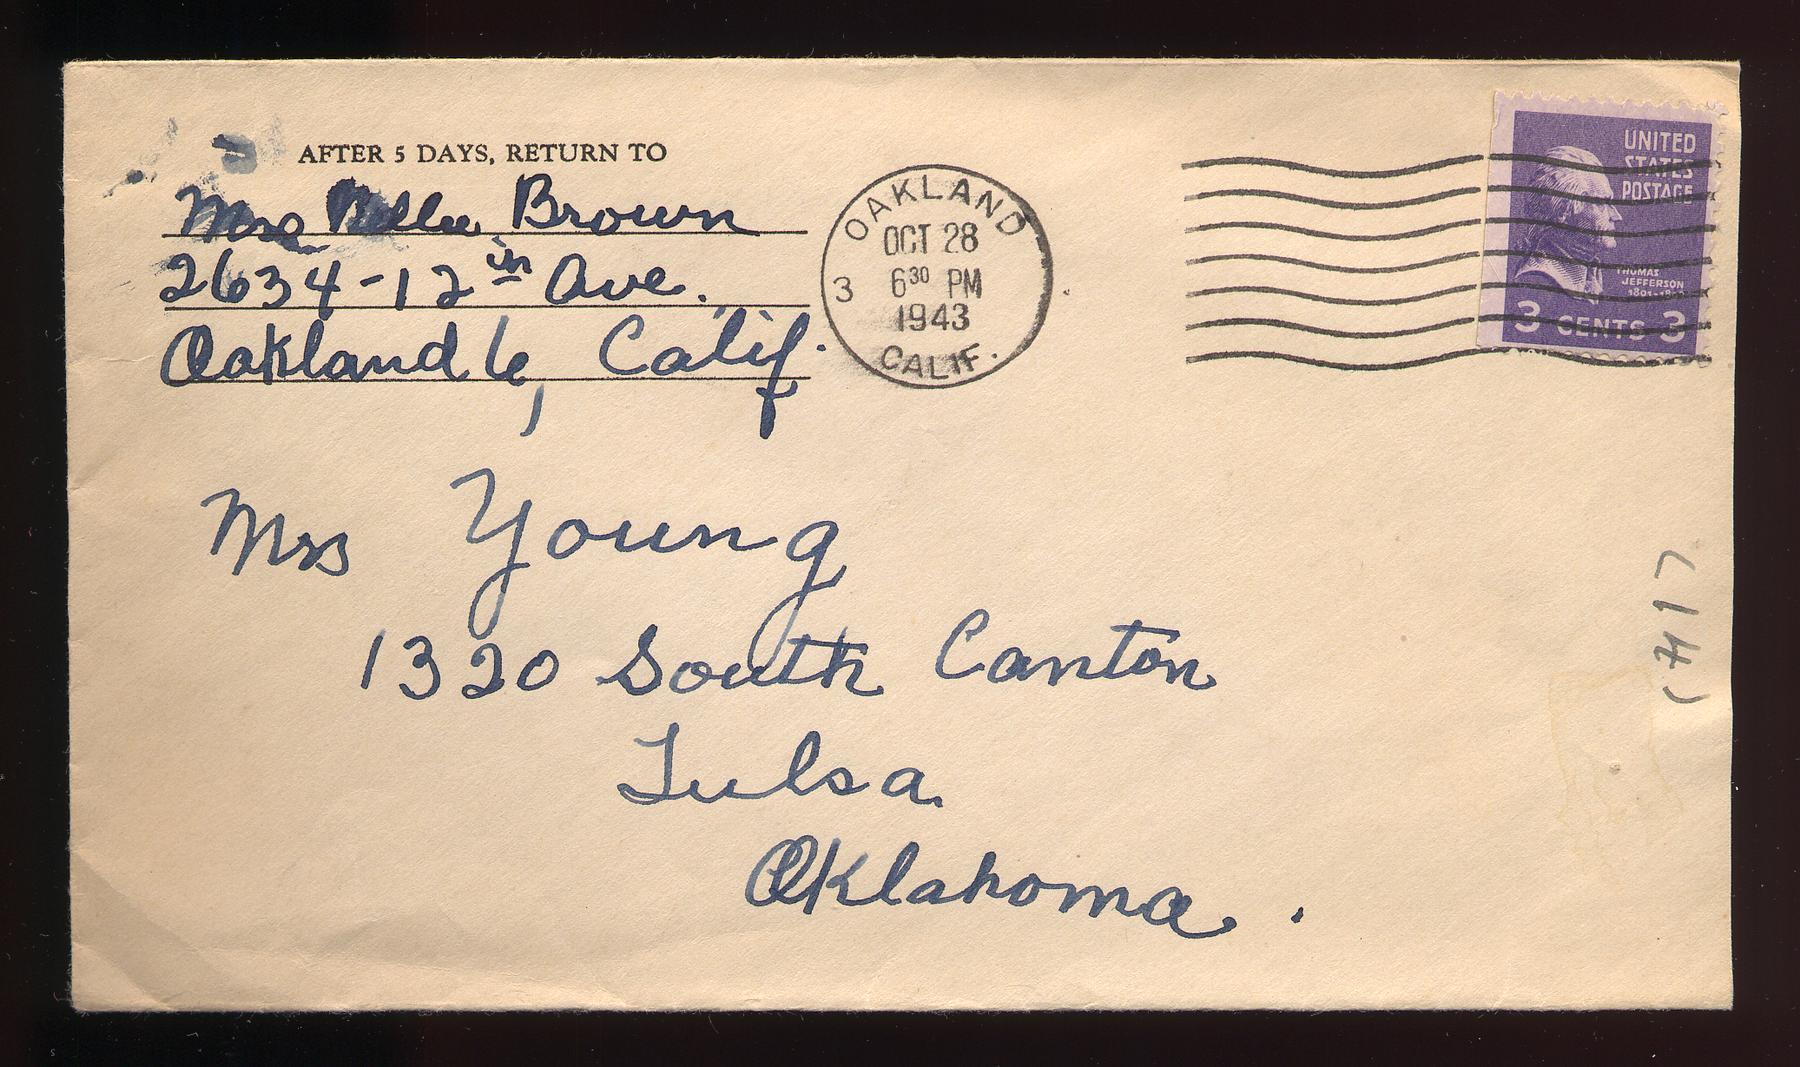 AFTER 5 DAYS, RETURN TO
Mrs Brown
2634-12th Ave.
Oakland 6, Calif.
OAKLAND
OCT 28
6 30 PM
3
1943
CALIF.
UNITED
STATES
POSTAGE
THOMAS
JEFFERSON
3 CENTS 3
Mrs Young
1320 South Canton
Tulsa
Oklahoma.